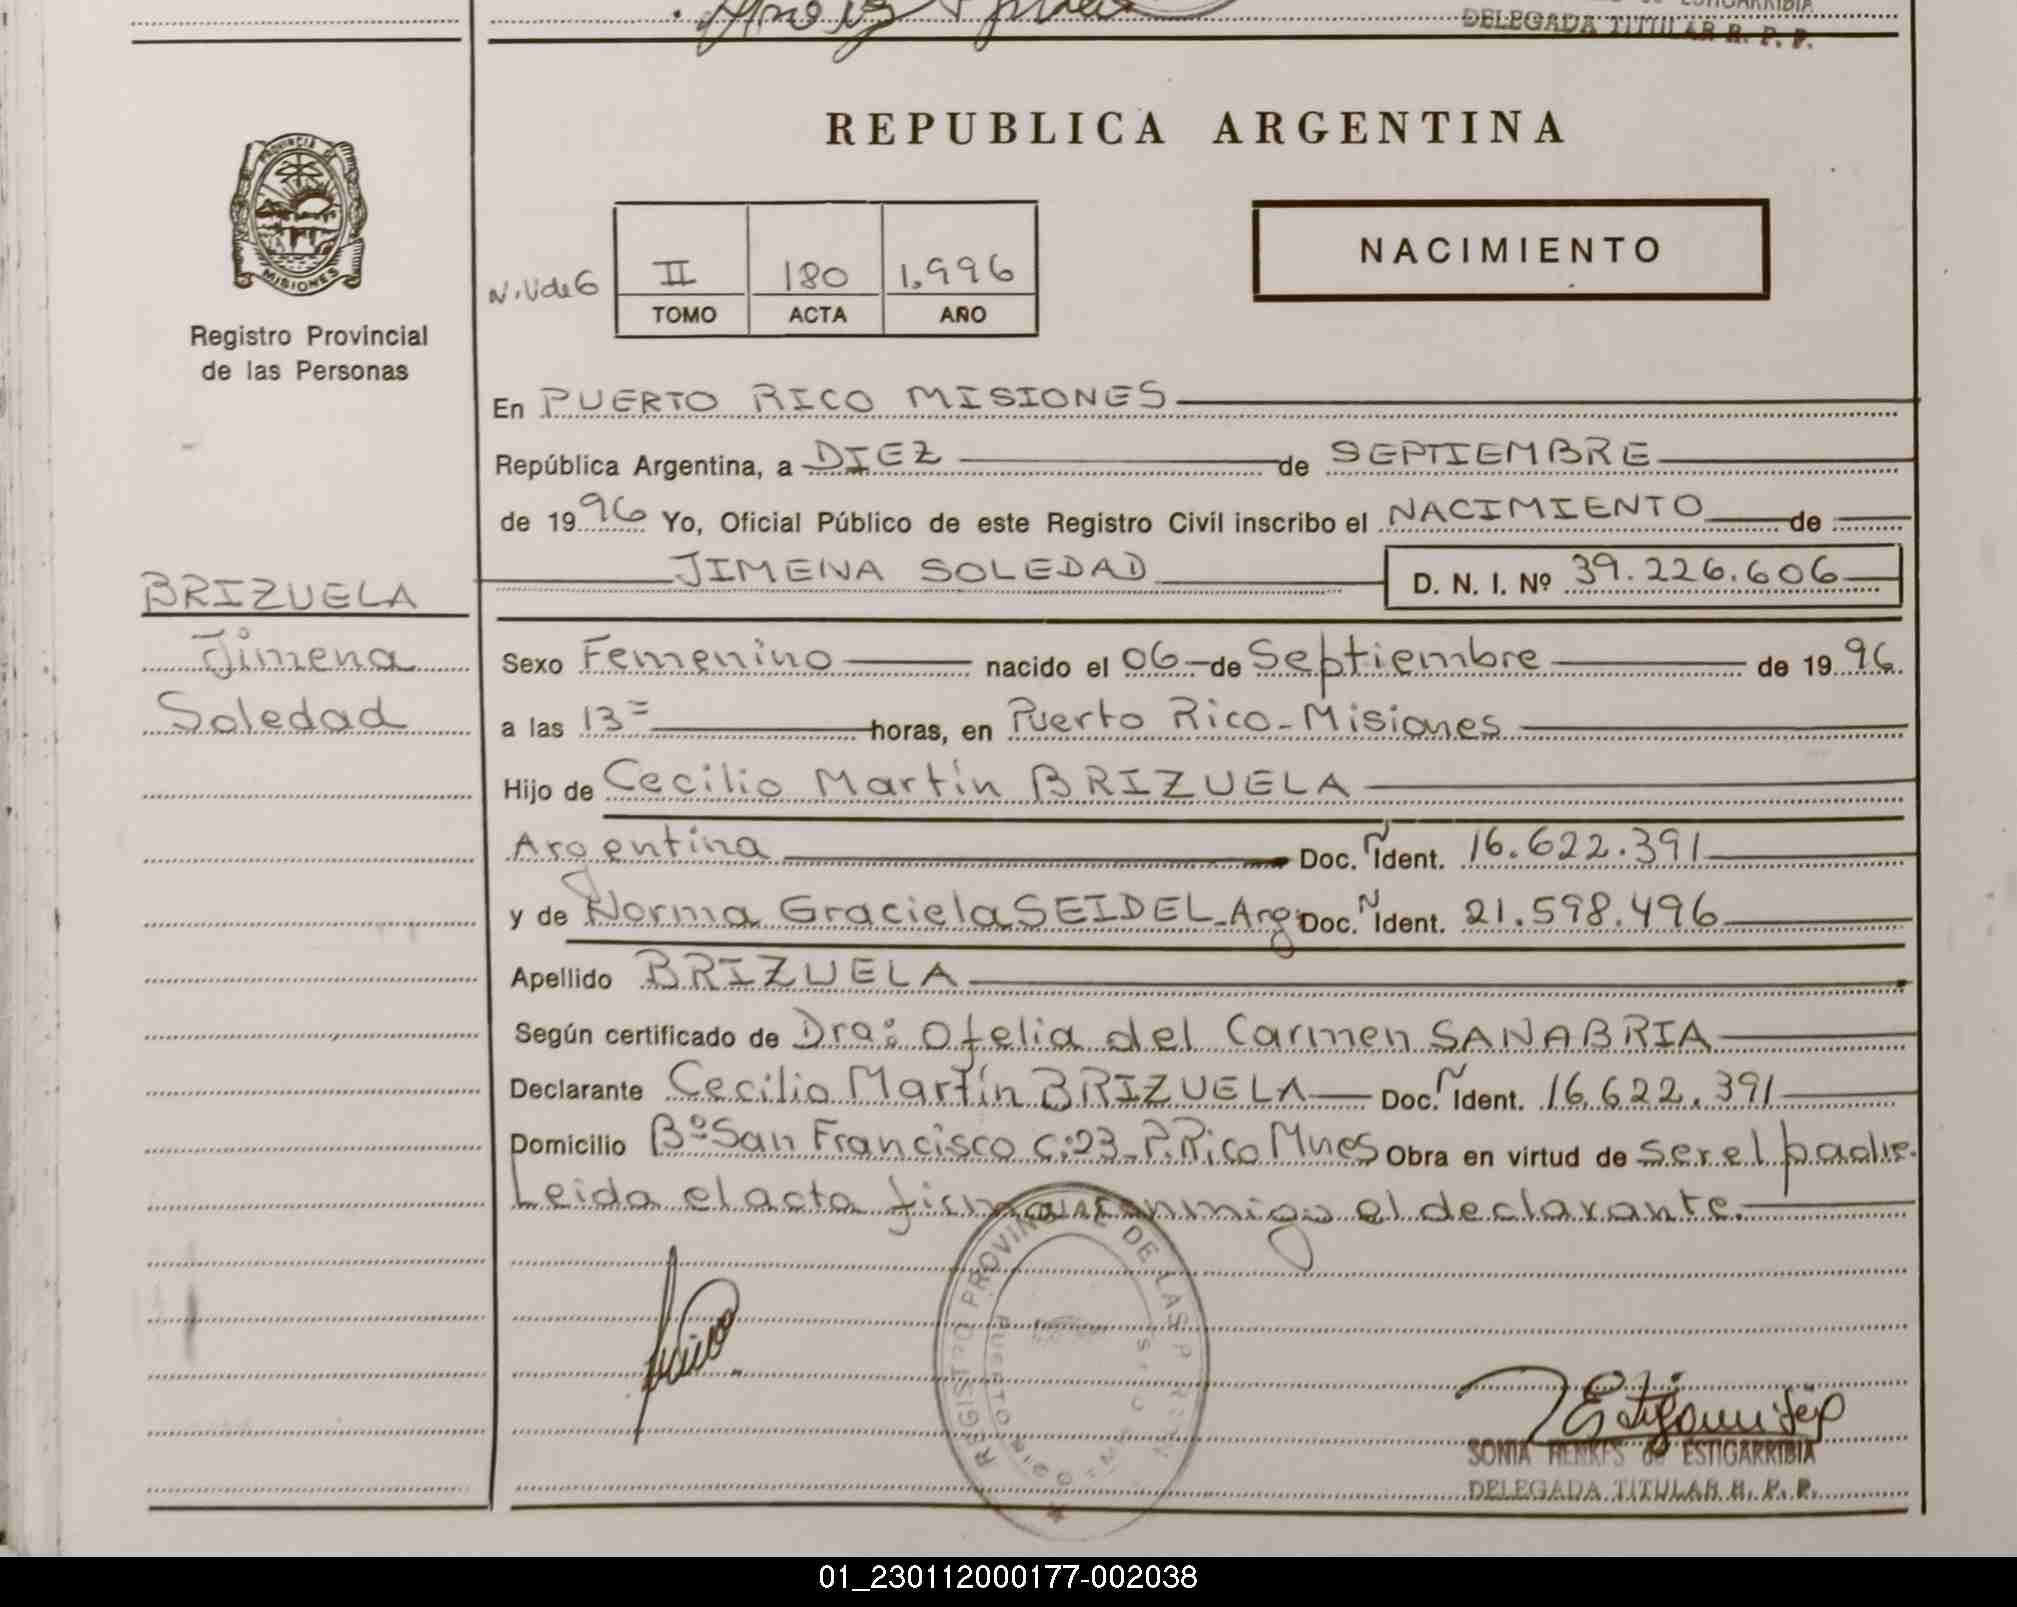 DELEGADA TITULAR R. P. P.
REPUBLICA ARGENTINA
PROVINCIA DE
MISIONES
Registro Provincial
de las Personas
NACIMIENTO
II 180 1.996
TOMO ACTA AÑO
En PUERTO RICO MISIONES
República Argentina, a DIEZ de SEPTIEMBRE
de 1996 Yo, Oficial Público de este Registro Civil inscribo el NACIMIENTO de
JIMENA SOLEDAD D. N. I. Nº 39.226.606
BRIZUELA
Jimena
Soledad
Sexo Femenino nacido el 06 de Septiembre de 1996.
a las 13= horas, en Puerto Rico-Misiones
Hijo de Cecilio Martín BRIZUELA
Argentina Doc. Ñ Ident. 16.622.391
y de Norma Graciela SEIDEL-Arg. Doc. N Ident. 21.598.496
Apellido BRIZUELA
Según certificado de Dra: Ofelia del Carmen SANABRIA
Declarante Cecilio Martín BRIZUELA Doc. Ñ Ident. 16.622.391
Domicilio Bº San Francisco C:23-P.Rico Mnes Obra en virtud de ser el padre.
Leida el acta firma conmigo el declarante.
REGISTRO PROVINCIAL DE LAS P
PUERTO RICO
SONIA HENKES de ESTIGARRIBIA
DELEGADA TITULAR R. P. P.
01_230112000177-002038